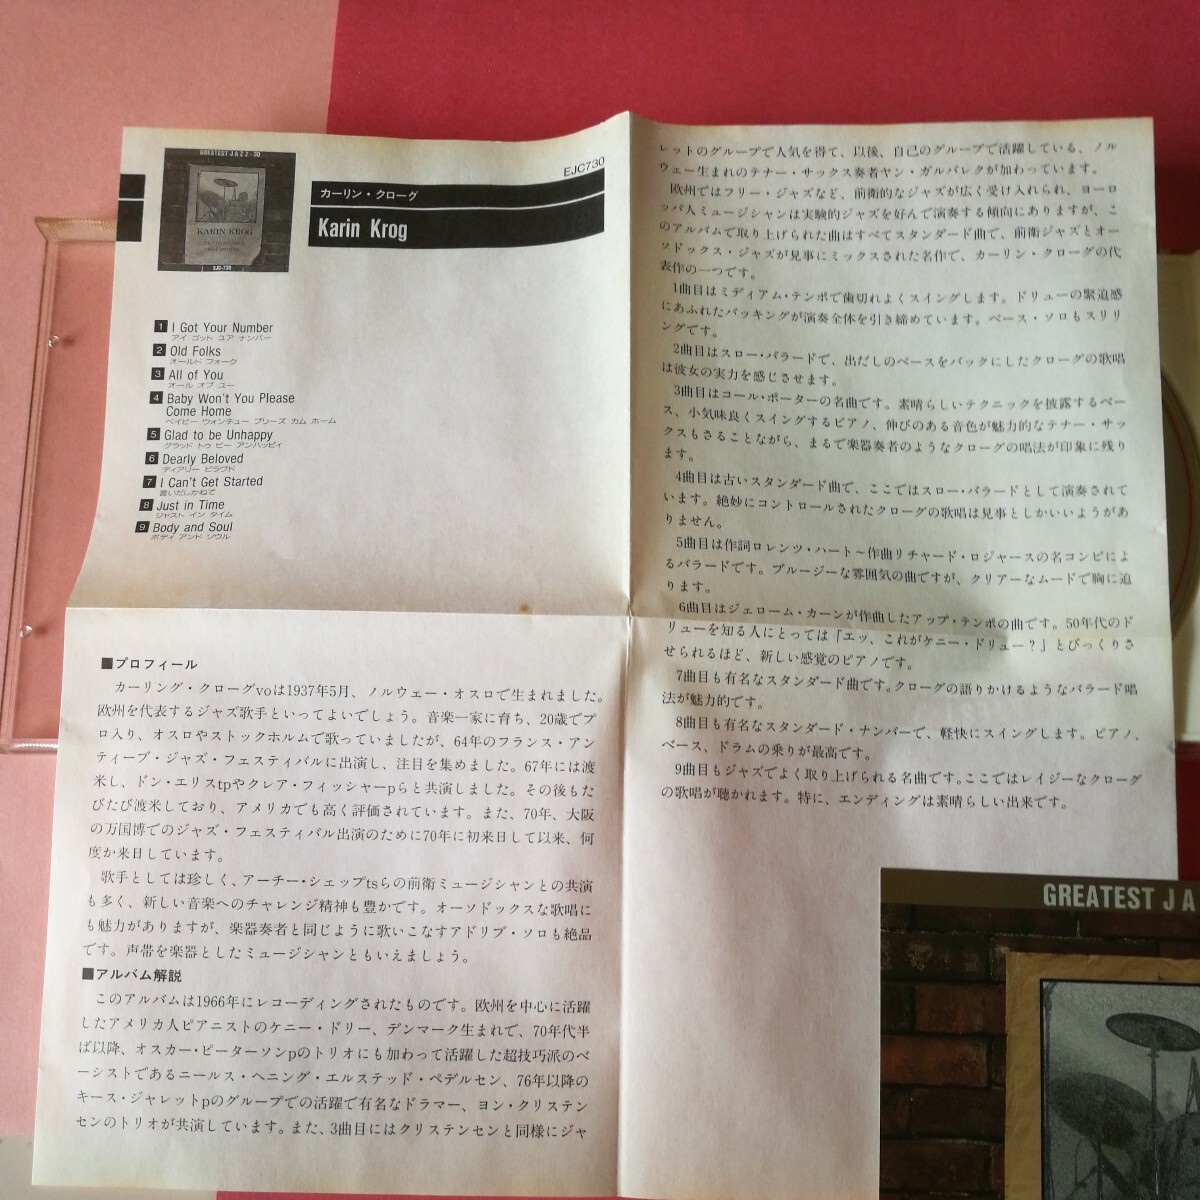 GREATEST JAZZ-30
KARIN KROG
EJC-730
EJC730
カーリン・クローグ
Karin Krog
1 I Got Your Number
アイ ゴット ユア ナンバー
2 Old Folks
オールド フォーク
3 All of You
オール オブ ユー
4 Baby Won't You Please
Come Home
ベイビー ウォンチュー プリーズ カム ホーム
5 Glad to be Unhappy
グラッド トゥ ビー アンハッピィ
6 Dearly Beloved
ディアリー ビラヴド
7 I Can't Get Started
言いだしかねて
8 Just in Time
ジャスト イン タイム
9 Body and Soul
ボディ アンド ソウル
■プロフィール
カーリング・クローグvoは1937年5月、ノルウェー・オスロで生まれました。
欧州を代表するジャズ歌手といってよいでしょう。音楽一家に育ち、20歳でプ
ロ入り、オスロやストックホルムで歌っていましたが、64年のフランス・アン
ティーブ・ジャズ・フェスティバルに出演し、注目を集めました。67年には渡
米し、ドン・エリスtpやクレア・フィッシャーpらと共演しました。その後もた
びたび渡米しており、アメリカでも高く評価されています。また、70年、大阪
の万国博でのジャズ・フェスティバル出演のために70年に初来日して以来、何
度か来日しています。
歌手としては珍しく、アーチー・シェップtsらの前衛ミュージシャンとの共演
も多く、新しい音楽へのチャレンジ精神も豊かです。オーソドックスな歌唱に
も魅力がありますが、楽器奏者と同じように歌いこなすアドリブ・ソロも絶品
です。声帯を楽器としたミュージシャンともいえましょう。
■アルバム解説
このアルバムは1966年にレコーディングされたものです。欧州を中心に活躍
したアメリカ人ピアニストのケニー・ドリー、デンマーク生まれで、70年代半
ば以降、オスカー・ピーターソンpのトリオにも加わって活躍した超技巧派のベ
ーシストであるニールス・ヘニング・エルステッド・ペデルセン、76年以降の
キース・ジャレットpのグループでの活躍で有名なドラマー、ヨン・クリステン
センのトリオが共演しています。また、3曲目にはクリステンセンと同様にジャ
レットのグループで人気を得て、以後、自己のグループで活躍している、ノル
ウェー生まれのテナー・サックス奏者ヤン・ガルバレクが加わっています。
欧州ではフリー・ジャズなど、前衛的なジャズが広く受け入れられ、ヨーロ
ッパ人ミュージシャンは実験的ジャズを好んで演奏する傾向にありますが、こ
のアルバムで取り上げられた曲はすべてスタンダード曲で、前衛ジャズとオー
ソドックス・ジャズが見事にミックスされた名作で、カーリン・クローグの代
表作の一つです。
1曲目はミディアム・テンポで歯切れよくスイングします。ドリューの緊迫感
にあふれたバッキングが演奏全体を引き締めています。ベース・ソロもスリリ
ングです。
2曲目はスロー・バラードで、出だしのベースをバックにしたクローグの歌唱
は彼女の実力を感じさせます。
3曲目はコール・ポーターの名曲です。素晴らしいテクニックを披露するベー
ス、小気味良くスイングするピアノ、伸びのある音色が魅力的なテナー・サッ
クスもさることながら、まるで楽器奏者のようなクローグの唱法が印象に残り
ます。
4曲目は古いスタンダード曲で、ここではスロー・バラードとして演奏されて
います。絶妙にコントロールされたクローグの歌唱は見事としかいいようがあ
りません。
5曲目は作詞ロレンツ・ハート～作曲リチャード・ロジャースの名コンビによ
るバラードです。ブルージーな雰囲気の曲ですが、クリアーなムードで胸に迫
ります。
6曲目はジェローム・カーンが作曲したアップ・テンポの曲です。50年代のド
リューを知る人にとっては「エッ、これがケニー・ドリュー？」とびっくりさ
せられるほど、新しい感覚のピアノです。
7曲目も有名なスタンダード曲です。クローグの語りかけるようなバラード唱
法が魅力的です。
8曲目も有名なスタンダード・ナンバーで、軽快にスイングします。ピアノ、
ベース、ドラムの乗りが最高です。
9曲目もジャズでよく取り上げられる名曲です。ここではレイジーなクローグ
の歌唱が聴かれます。特に、エンディングは素晴らしい出来です。
GREATEST JA